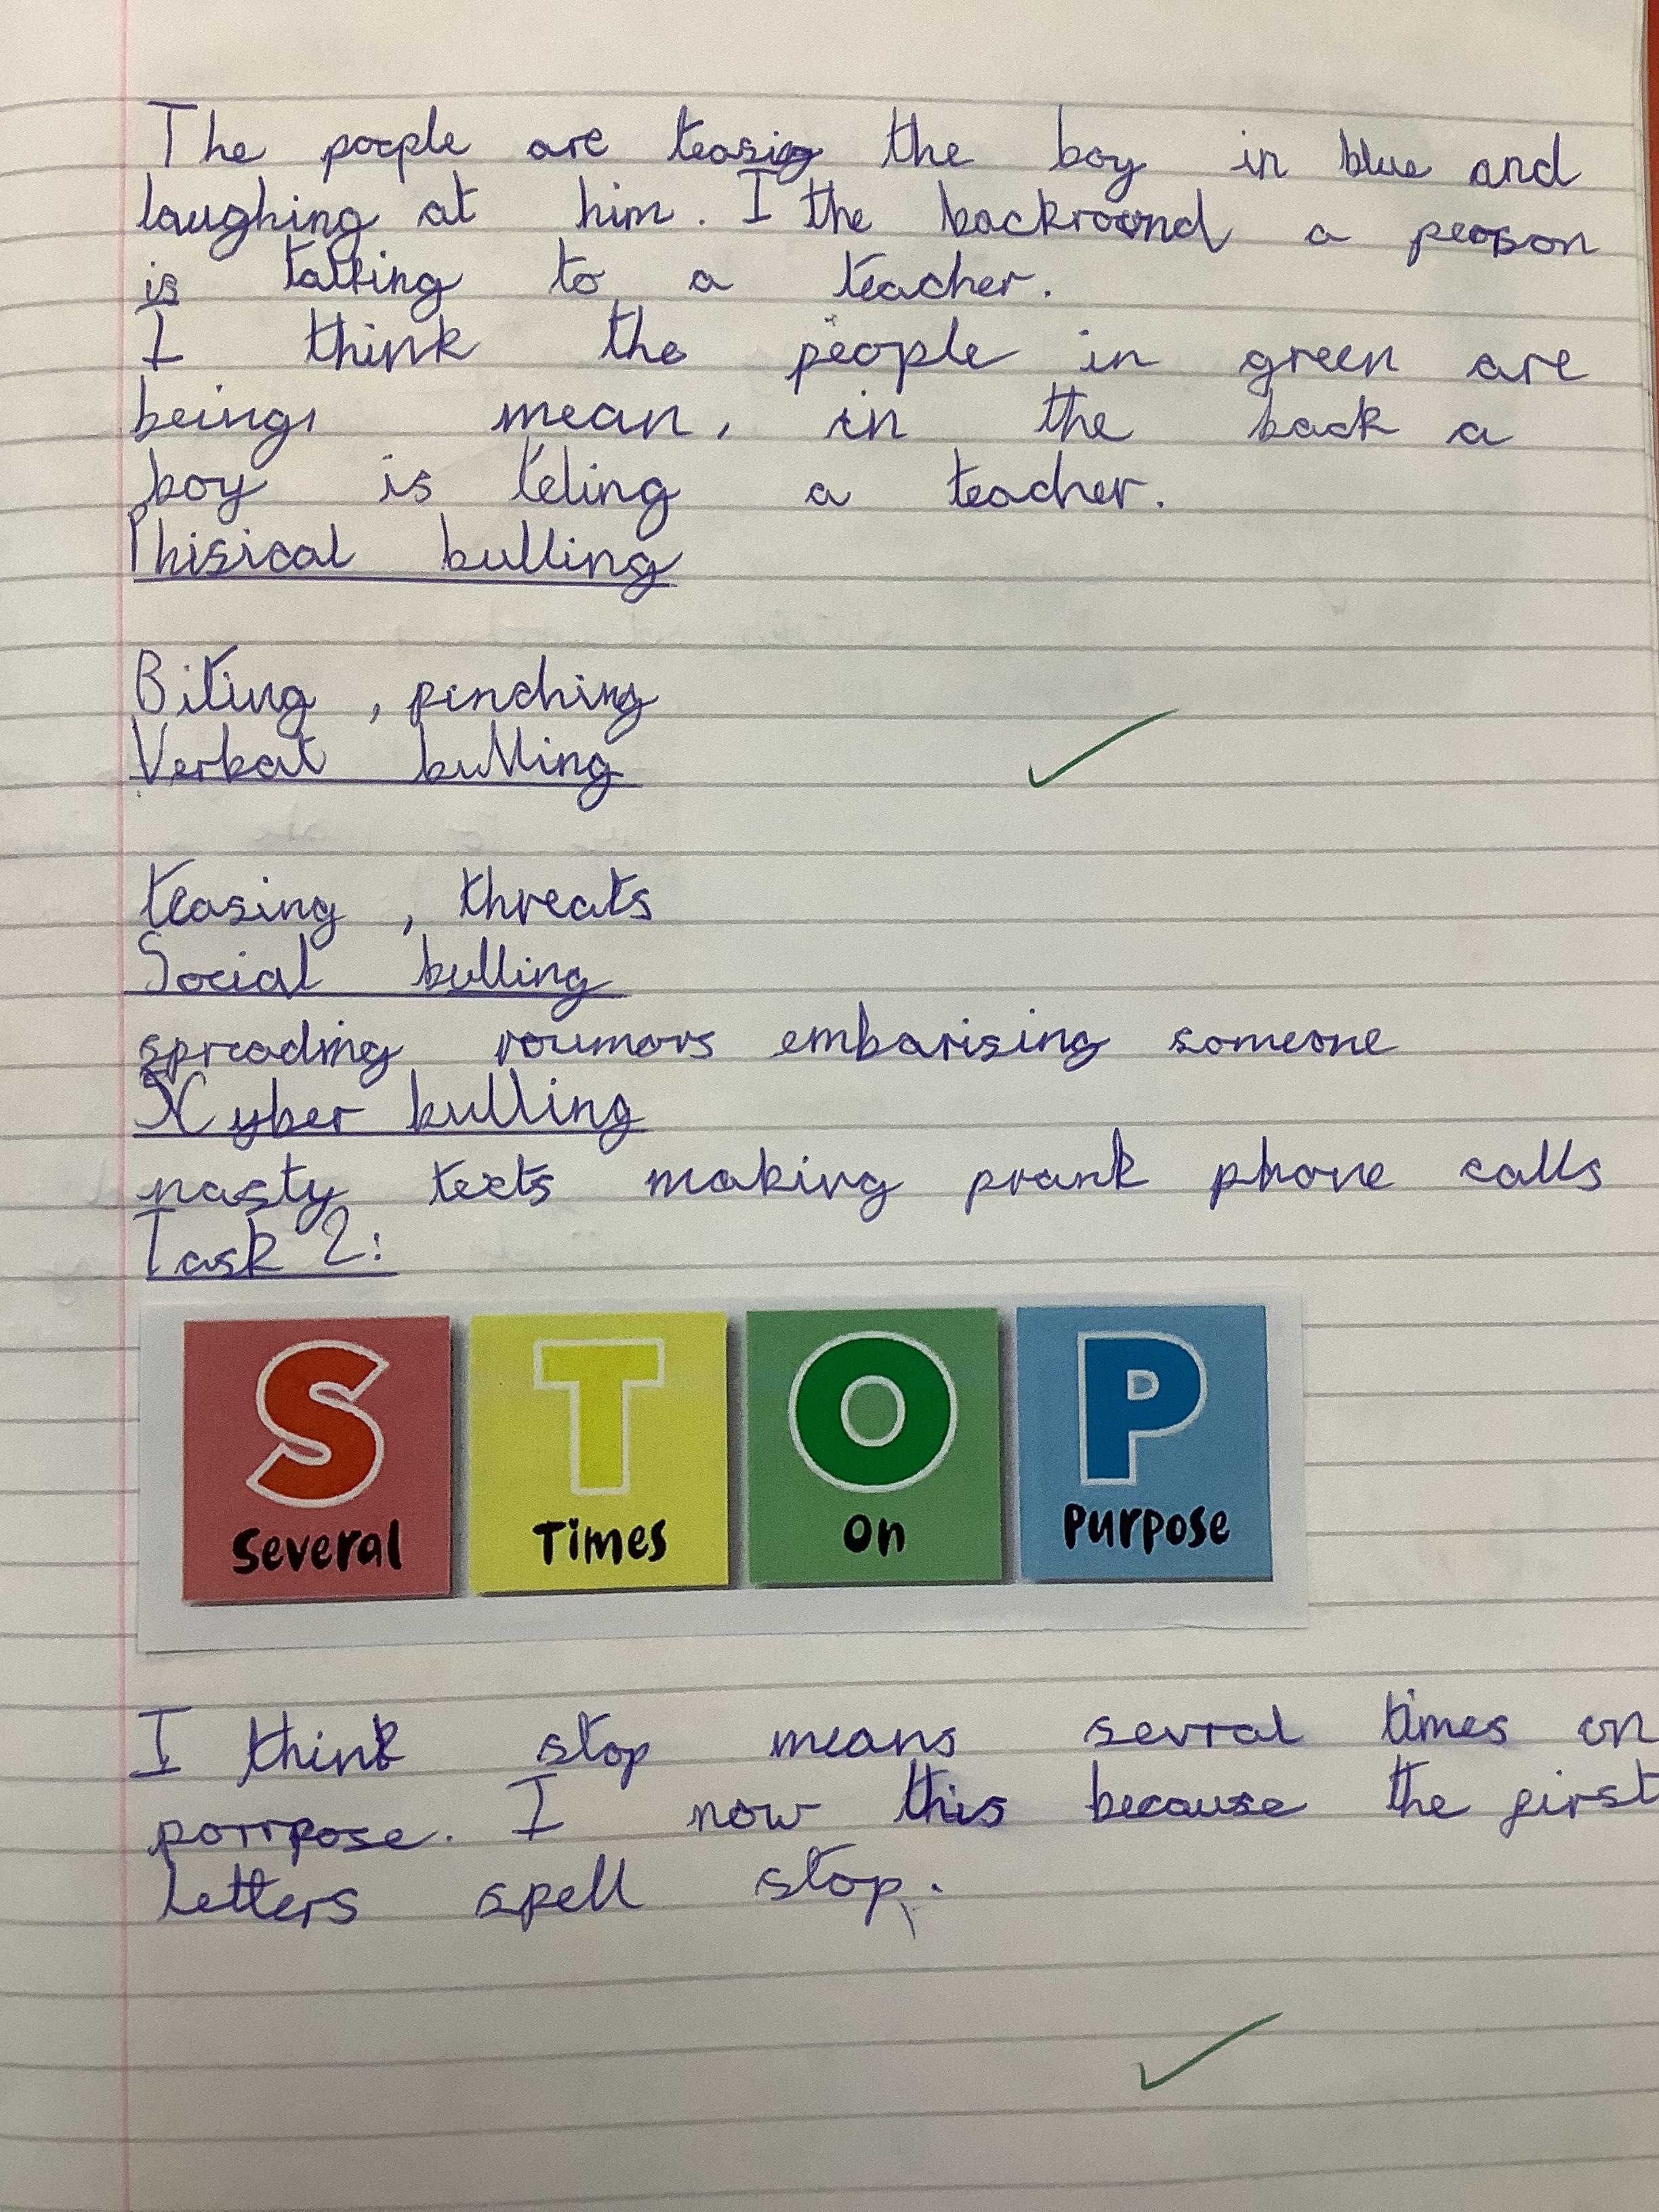 The poeple are teasig the boy in blue and
laughing at him. I the backround a peoson
is talking to a teacher.
I think the people in green are
being mean, in the back a
boy is teling a teacher.
Phisical bulling
Biting, pinching
Verbal bulling
teasing, threats
Social bulling
spreading roumors embarising someone
Cyber bulling
nasty texts making prank phone calls
Task 2:
S T O P
Several Times On Purpose
I think stop means sevral times on
porrpose. I now this because the first
letters spell stop.